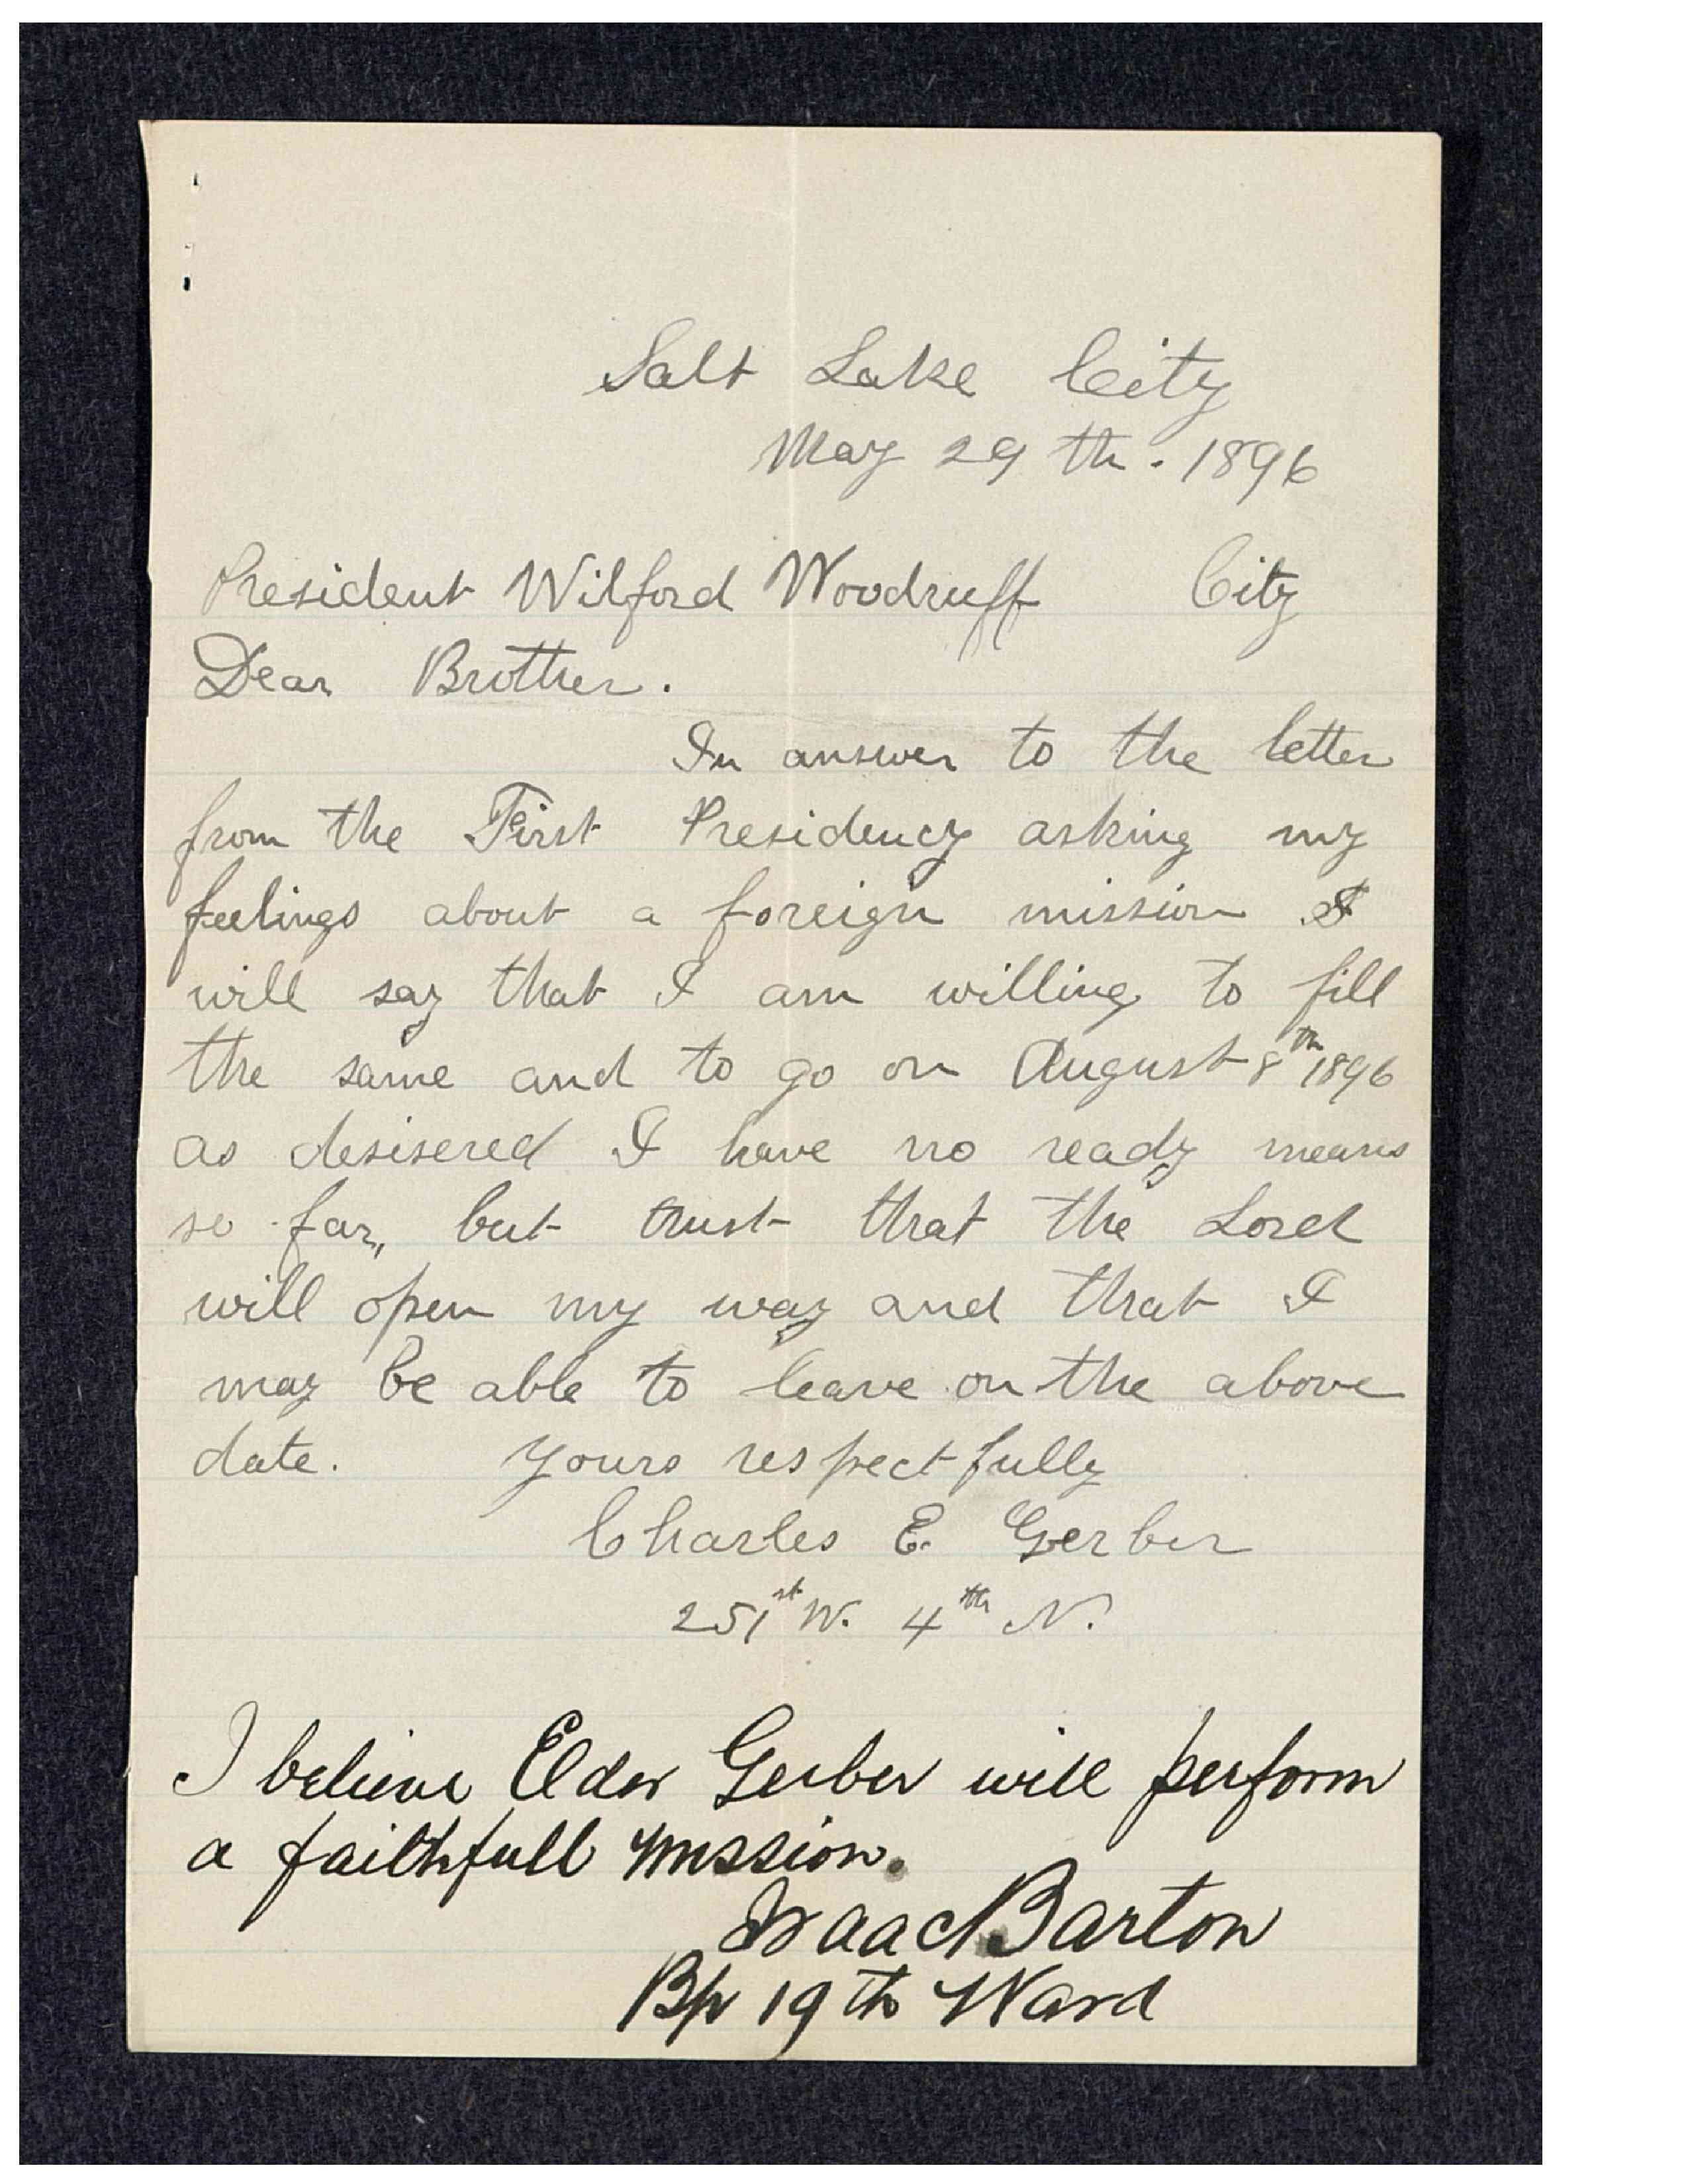 Salt Lake City
May 29 th. 1896
President Wilford Woodruff City
Dear Brother.
In answer to the letter
from the First Presidency asking my
feelings about a foreign mission I
will say that I am willing to fill
the same and to go on August 8th 1896
as desisered I have no ready means
so far, but trust that the Lord
will open my way and that I
may be able to leave on the above
date. Yours respectfully
Charles E. Gerber
251st W. 4th N.
I believe Elder Gerber will perform
a faithfull mission.
Isaac Barton
Bp 19th Ward